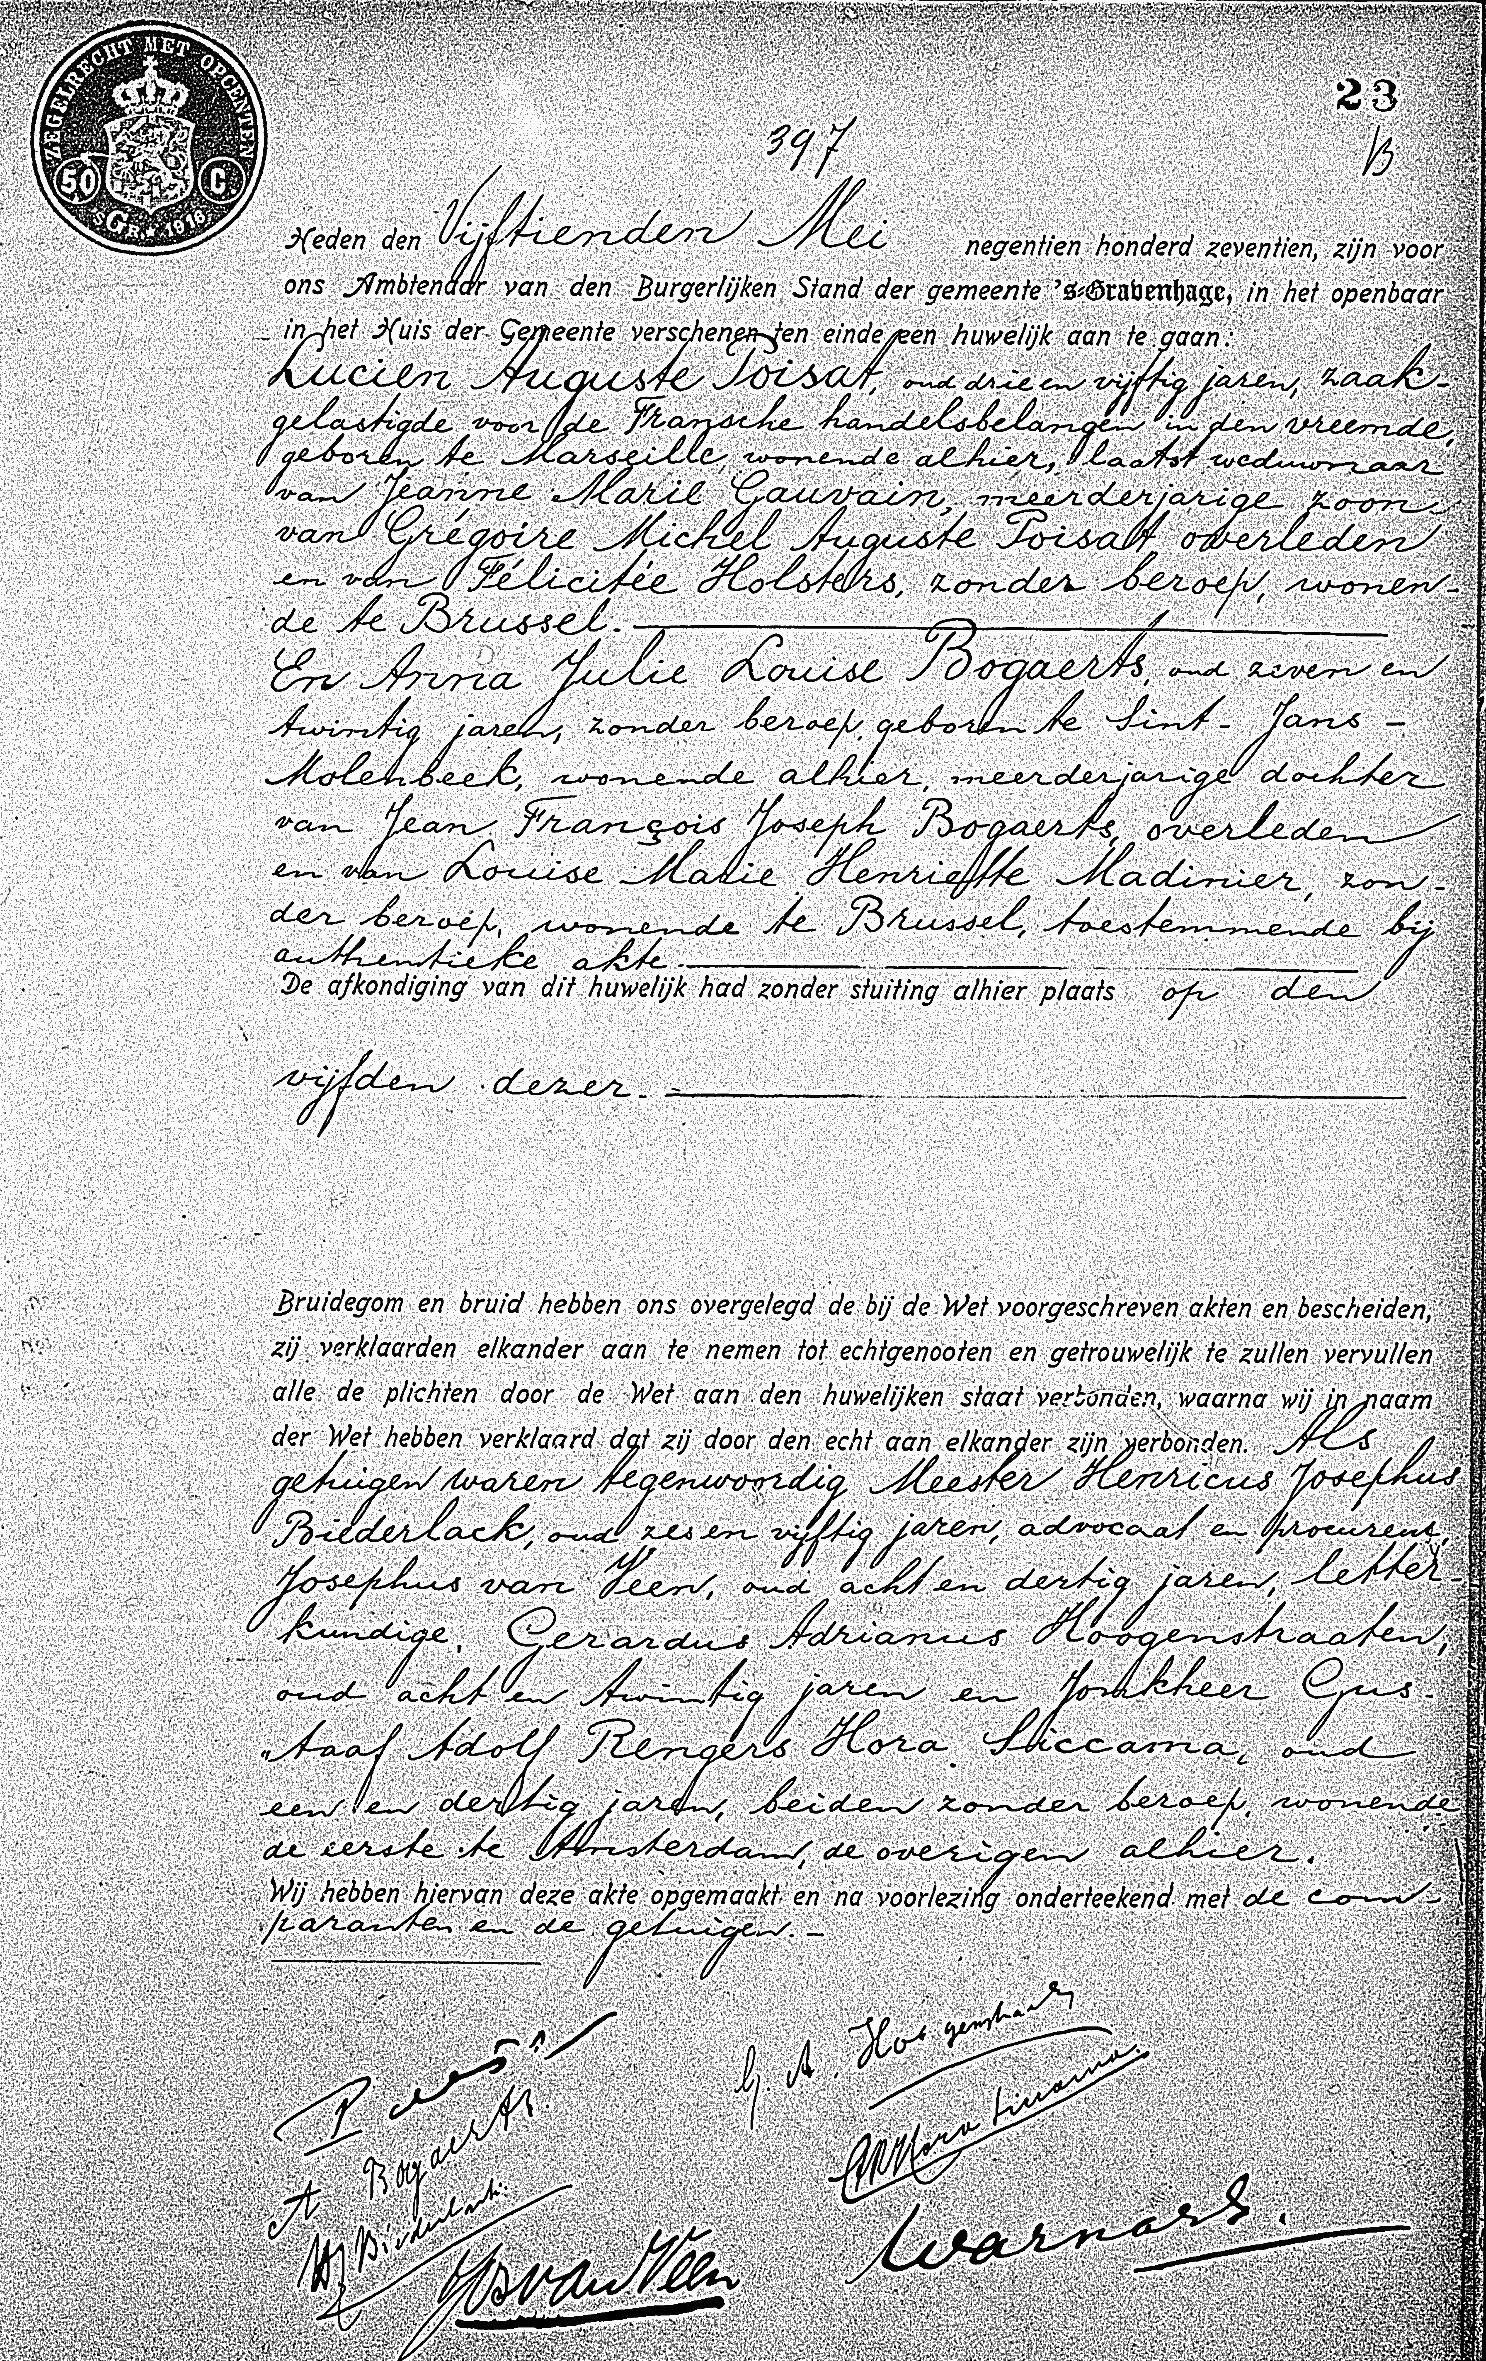 ZEGELRECHT MET OPCENTEN
50 C
'sGR. 1916
23
397
B
Heden den Vijftienden Mei negentien honderd zeventien, zijn voor
ons Ambtenaar van den Burgerlijken Stand der gemeente 's-Gravenhage, in het openbaar
in het Huis der Gemeente verschenen ten einde een huwelijk aan te gaan:
Lucien Auguste Poisat, oud drie en vijftig jaren, zaak-
gelastigde voor de Fransche handelsbelangen in den vreemde,
geboren te Marseille, wonende alhier, laatst weduwnaar
van Jeanne Marie Gauvain, meerderjarige zoon
van Grégoire Michel Auguste Poisat overleden
en van Félicitée Holsters, zonder beroep, wonen-
de te Brussel.
En Anna Julie Louise Bogaerts, oud zeven en
twintig jaren, zonder beroep, geboren te Sint-Jans-
Molenbeek, wonende alhier, meerderjarige dochter
van Jean François Joseph Bogaerts, overleden
en van Louise Marie Henriette Madinier, zon-
der beroep, wonende te Brussel, toestemmende bij
authentieke akte.
De afkondiging van dit huwelijk had zonder stuiting alhier plaats op den
vijfden dezer.
Bruidegom en bruid hebben ons overgelegd de bij de Wet voorgeschreven akten en bescheiden,
zij verklaarden elkander aan te nemen tot echtgenooten en getrouwelijk te zullen vervullen
alle de plichten door de Wet aan den huwelijken staat verbonden, waarna wij in naam
der Wet hebben verklaard dat zij door den echt aan elkander zijn verbonden. Als
getuigen waren tegenwoordig Meester Henricus Josephus
Biederlack, oud zes en vijftig jaren, advocaat en procureur,
Josephus van Veen, oud acht en dertig jaren, letter-
kundige, Gerardus Adrianus Hoogenstraaten,
oud acht en twintig jaren en Jonkheer Gus-
„taaf Adolf Rengers Hora Siccama, oud
een en dertig jaren, beiden zonder beroep, wonende
de eerste te Amsterdam, de overigen alhier.
Wij hebben hiervan deze akte opgemaakt en na voorlezing onderteekend met de com-
paranten en de getuigen.
G. A. Hoogenstraaten
A Bogaerts.
HJ Biederlack.
Jos van Veen
Warnars.